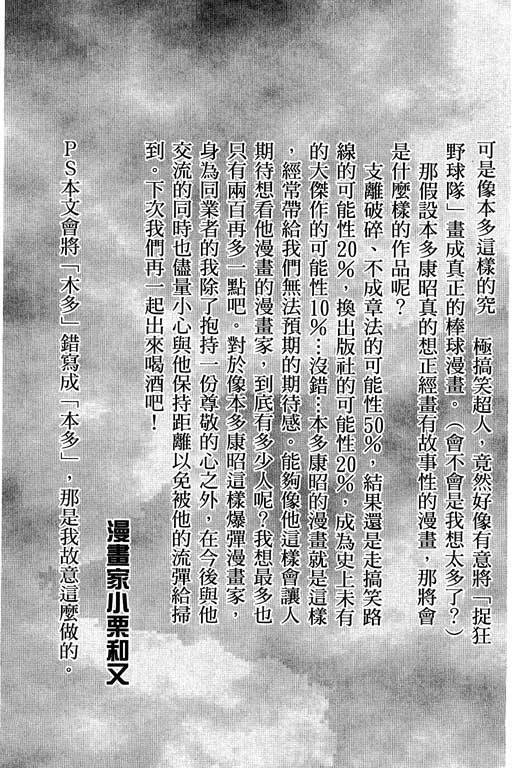 可是像本多這樣的究　極搞笑超人，竟然好像有意將「捉狂
野球隊」畫成真正的棒球漫畫。（會不會是我想太多了？）
那假設本多康昭真的想正經畫有故事性的漫畫，那將會
是什麼樣的作品呢？
支離破碎、不成章法的可能性50%，結果還是走搞笑路
線的可能性20%，換出版社的可能性20%，成為史上未有
的大傑作的可能性10%…沒錯…本多康昭的漫畫就是這樣
，經常帶給我們無法預期的期待感。能夠像他這樣會讓人
期待想看他漫畫的漫畫家，到底有多少人呢？我想最多也
只有兩百再多一點吧。對於像本多康昭這樣爆彈漫畫家，
身為同業者的我除了抱持一份尊敬的心之外，在今後與他
交流的同時也儘量小心與他保持距離以免被他的流彈給掃
到。下次我們再一起出來喝酒吧！
漫畫家小栗和又
PS本文會將「木多」錯寫成「本多」，那是我故意這麼做的。